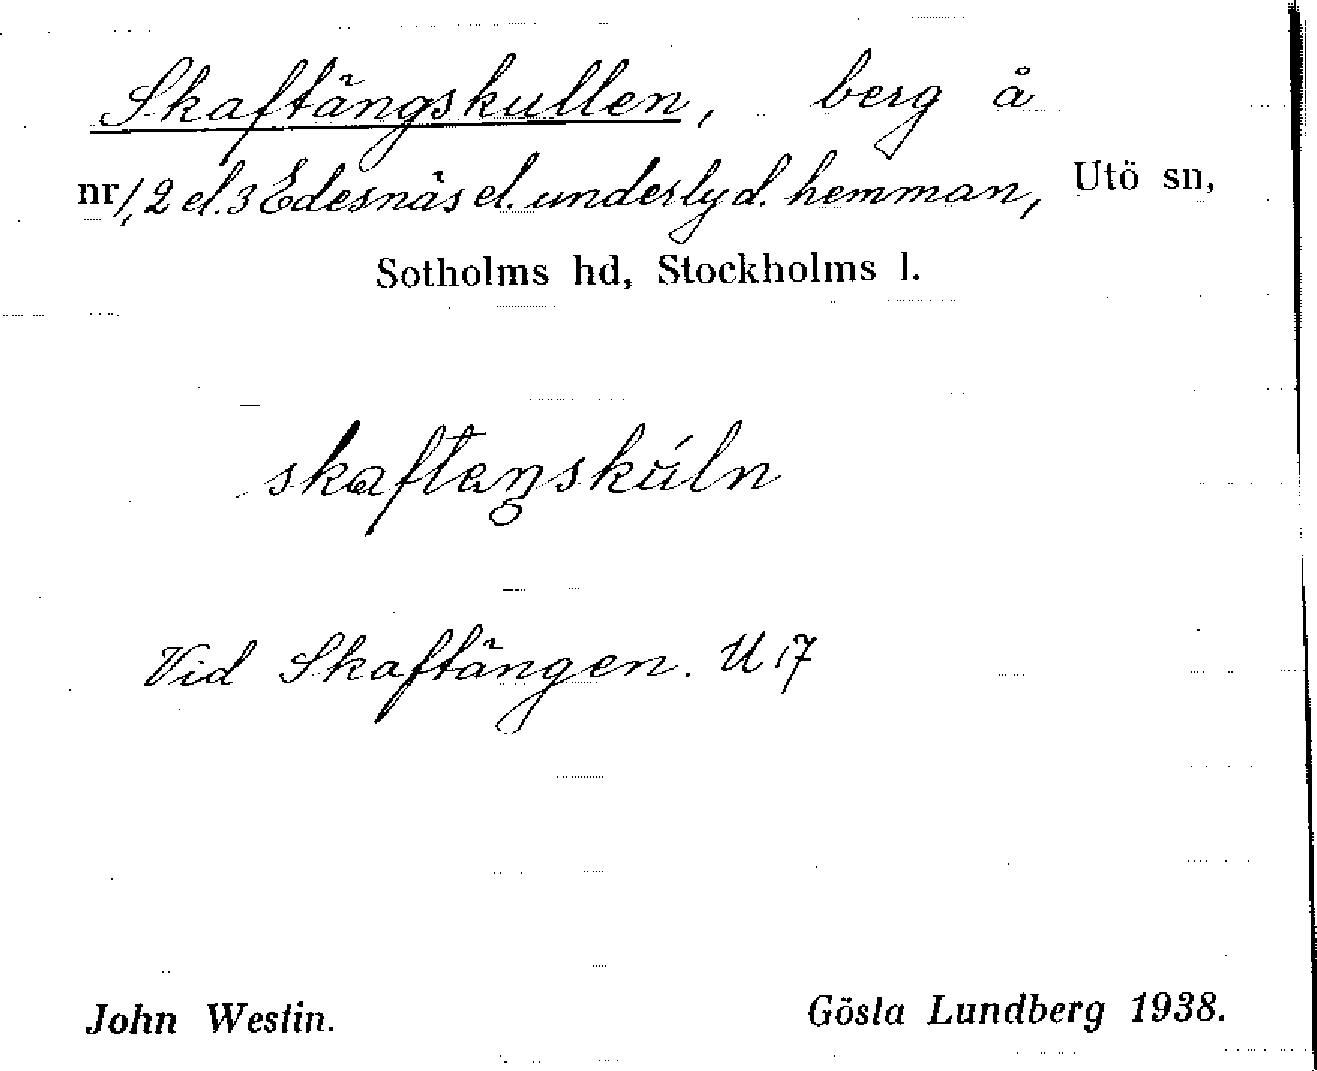 Skaftängskullen, berg å
nr 1, 2 el. 3 Edesnäs el. underlyd. hemman, Utö sn,
Sotholms hd, Stockholms l.
skaftaŋskúln
Vid Skaftängen. U 17
John Westin. Gösta Lundberg 1938.